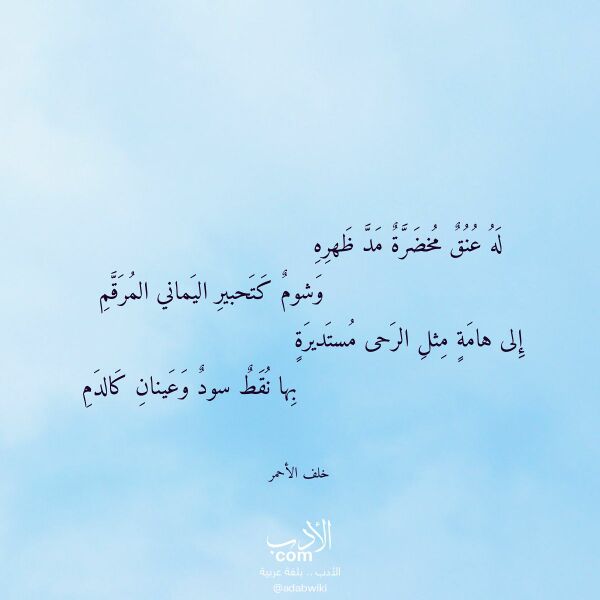 لَهُ عُنُقٌ مُخضَرَّةٌ مَدَّ ظَهرِهِ
وَشومٌ كَتَحبيرِ اليَماني المُرَقَّمِ
إِلى هامَةٍ مِثلِ الرَحى مُستَديرَةٍ
بِها نُقَطٌ سودٌ وَعَينانِ كَالدَمِ
خلف الأحمر
الأدب
com
الأدب .. بلغة عربية
@adabwiki